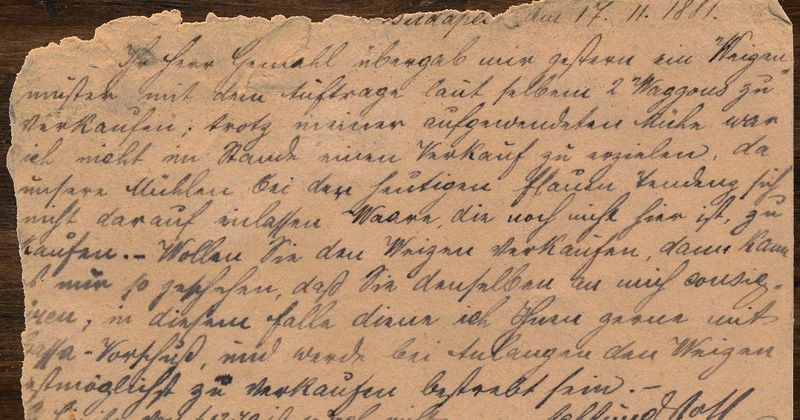 Budapest den 17. 11. 1881.
Ihr Herr Gemahl übergab mir gestern ein Weizen
muster mit dem Auftrage laut selbem 2 Waggons zu
verkaufen; trotz meiner aufgewendeten Mühe war
ich nicht im Stande einen Verkauf zu erzielen, da
unsere Mühlen bei der heutigen flauen Tendenz sich
nicht darauf einlassen Waare, die noch nicht hier ist, zu
kaufen. – Wollen Sie den Weizen verkaufen, dann kann
nur so geschehen, daß Sie denselben an mich consig-
niren, in diesem Falle diene ich Ihnen gerne mit
Cassa-Vorschuß, und werde bei Anlangen den Weizen
bestmöglichst zu verkaufen bestrebt sein. –